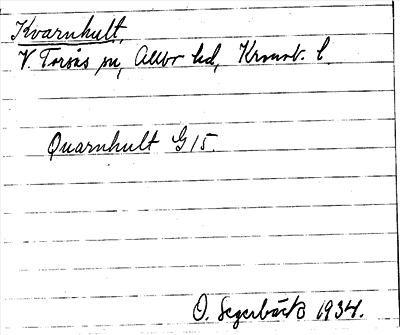 Kvarnhult,
V. Torsås sn, Allbo hd, Kronob. l.
Quarnhult G 15.
O. Segerbäck 1934.